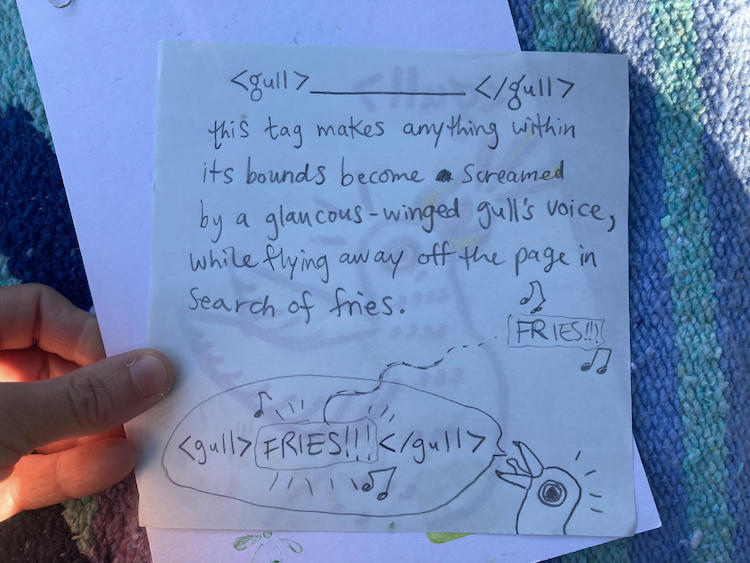 <gull>____________</gull>
this tag makes anything within
its bounds become screamed
by a glaucous-winged gull's voice,
while flying away off the page in
search of fries.
FRIES!!!
<gull>FRIES!!!</gull>